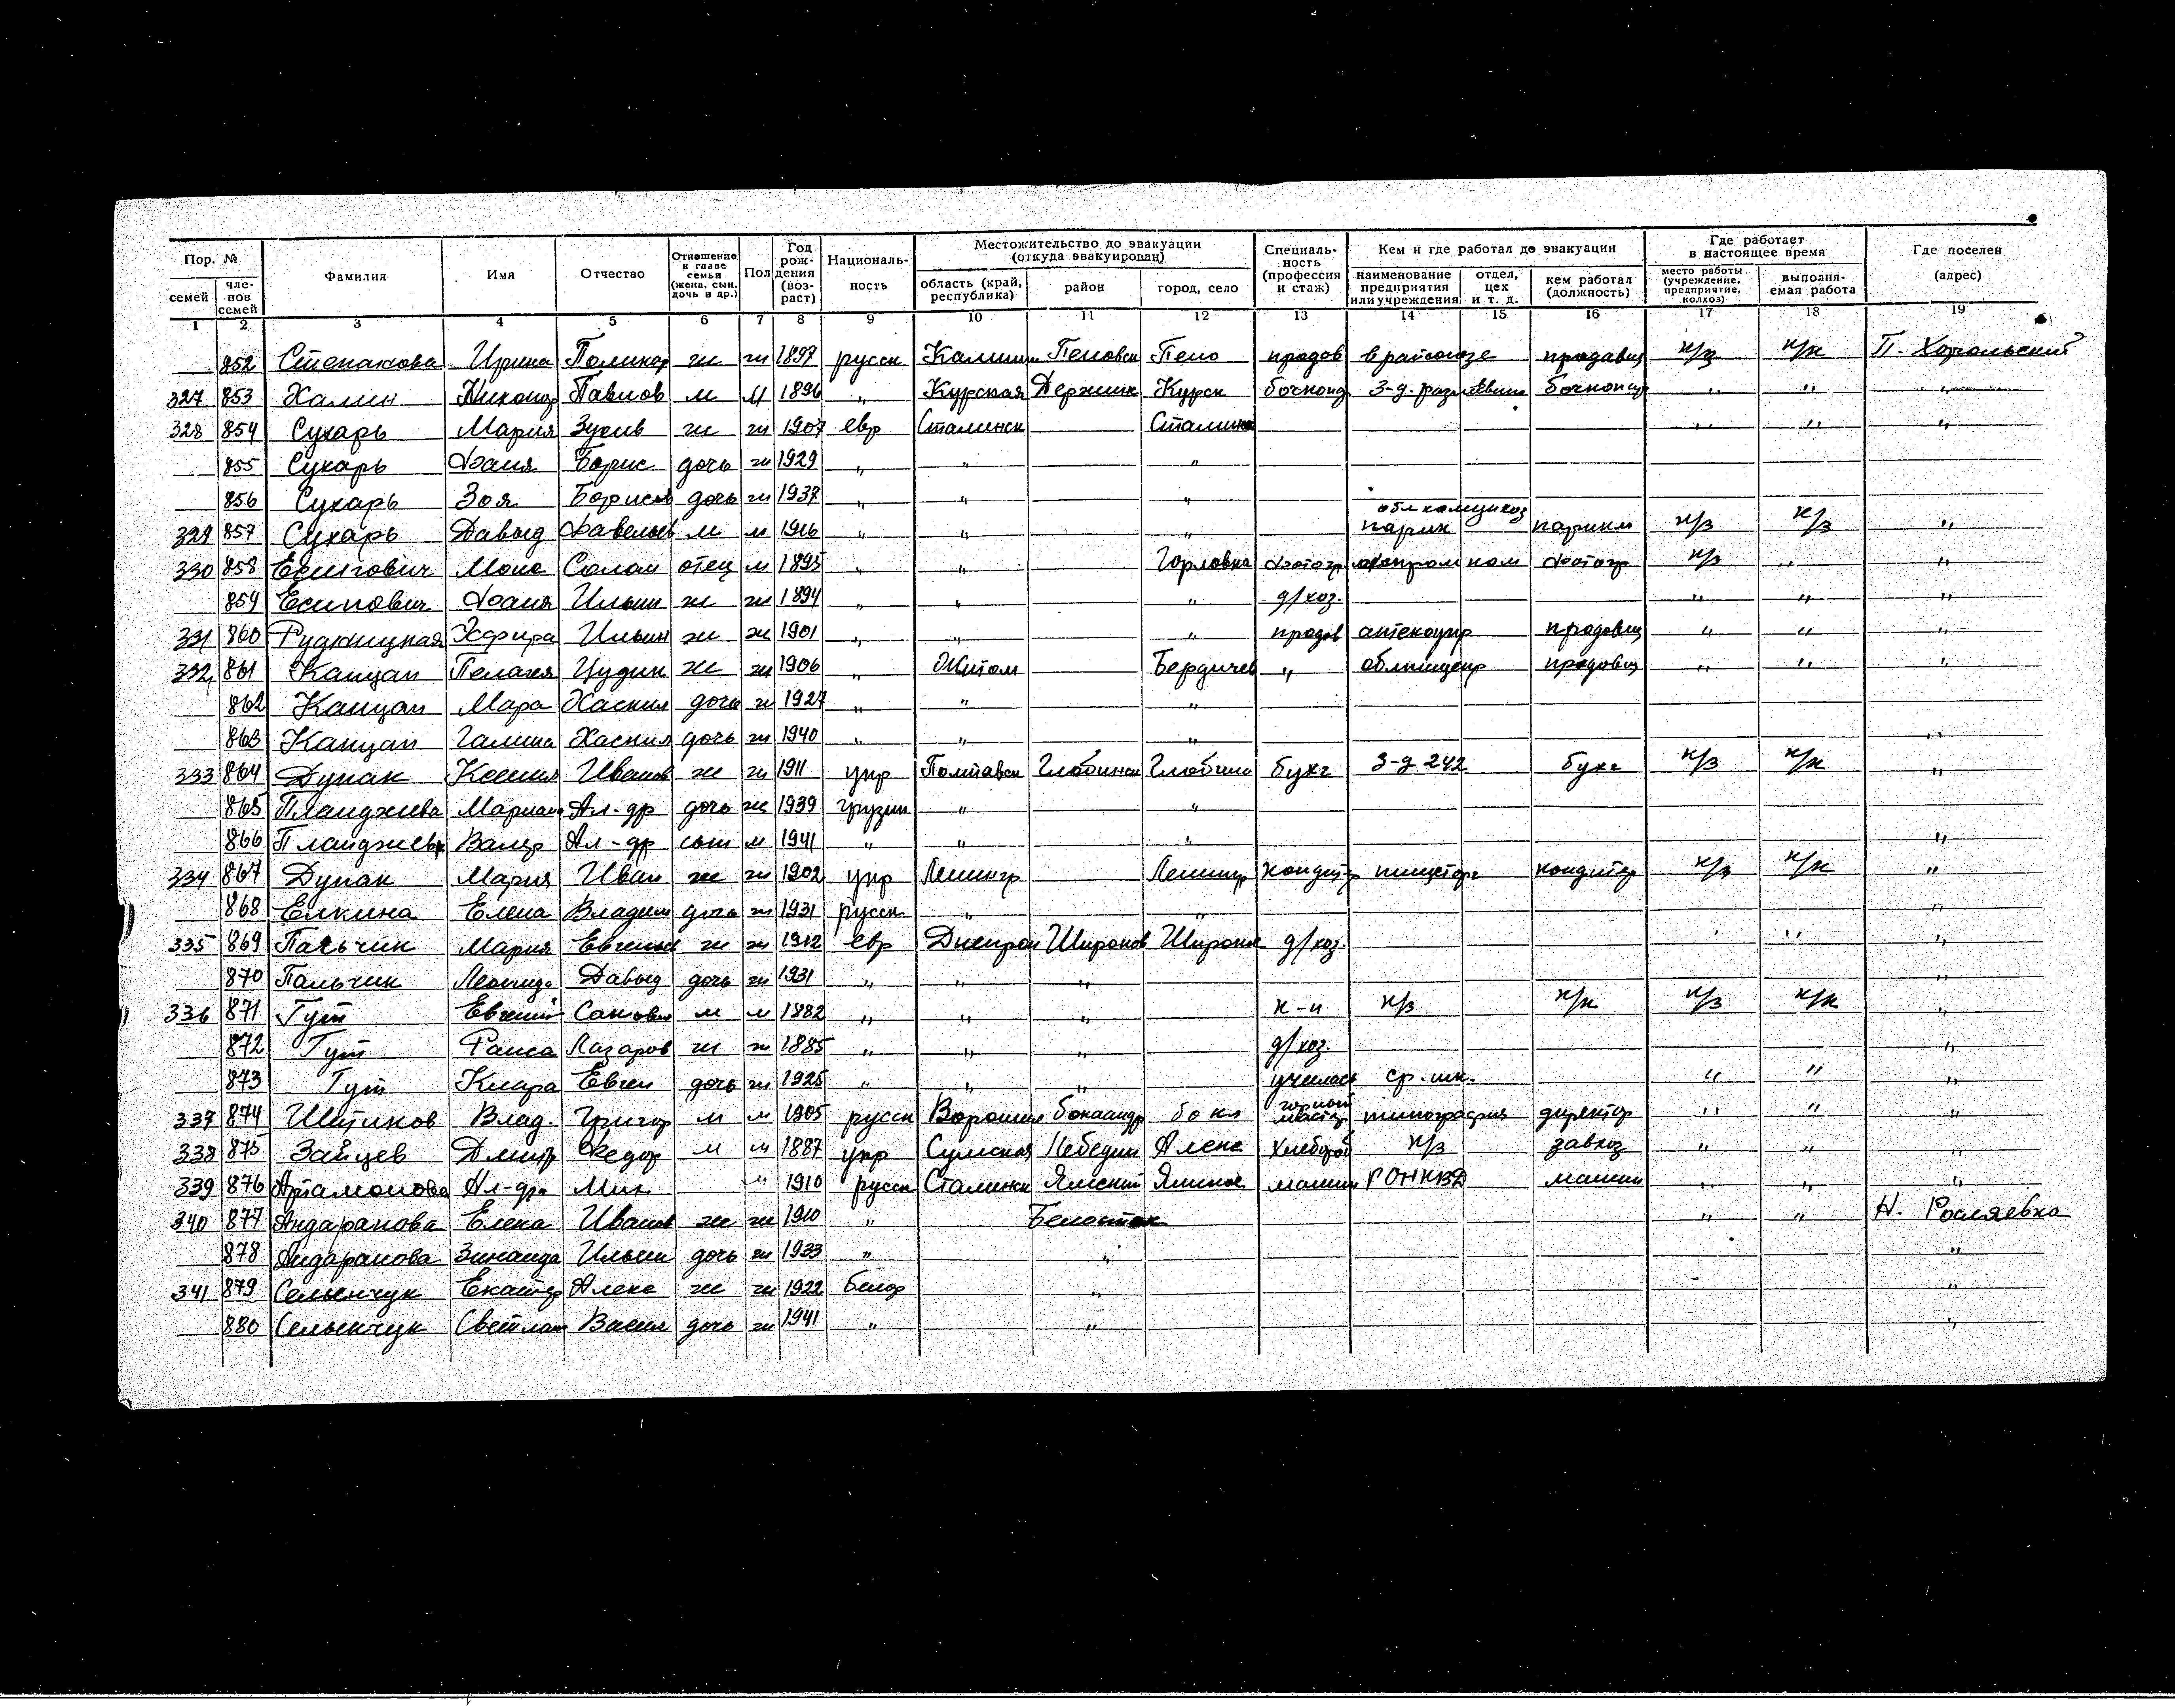 Пор. № Фамилия Имя Отчество Отношение к главе семьи (жена, сын, дочь и др.) Пол Год рождения (возраст) Националь-ность Местожительство до эвакуации (откуда эвакуирован) Специаль-ность (профессия и стаж) Кем и где работал до эвакуации Где работает в настоящее время Где поселен (адрес)
семей чле-нов семей область (край, республика) район город, село наименование предприятия или учреждения отдел, цех и т. д. кем работал (должность) место работы (учреждение, предприятие, колхоз) выполня-емая работа
1 2 3 4 5 6 7 8 9 10 11 12 13 14 15 16 17 18 19
852 Степанова Ирина Поликар ж ж 1897 русск Калинин Пеновск Пено продав в райсоюзе продавщ н/з н/к П. Хорольский
327 853 Халин Никанор Павлов м М 1896 " Курская Курск " " "
328 854 Сухарь Мария ж ж 1907 евр Сталинск Сталинск " " "
855 Сухарь Фаня Борис дочь ж 1929 " " "
856 Сухарь Зоя Борисов дочь ж 1937 " " "
329 857 Сухарь Давыд Савельев м м 1916 " " " парик парикм н/з н/з "
330 858 Есипович Соллом отец м 1895 " " Горловка фотогр фотогр н/з " "
859 Есипович Фаня Ильин ж ж 1894 " " " д/хоз. " " "
331 860 Рудницкая Эсфира Ильин ж ж 1901 " " " продав аптекоупр продавщ " " "
332 861 Канцан Пелагея Иудик ж ж 1906 " Житом Бердичев " облпищепр продавщ " " "
862 Канцан Мара Хаскил дочь ж 1927 " " "
863 Канцан Галина Хаскил дочь ж 1940 " " " "
333 864 Дупак Ксения Иванов ж ж 1911 укр Полтавск Глобинск Глобино бухг З-д 242 бухг н/з н/к "
865 Планджиева Мариан Ал-др дочь ж 1939 грузин " "
866 Планджиев Валер Ал-др сын м 1941 " " " "
334 867 Дупак Мария Иван ж ж 1902 укр Ленингр Ленингр кондитер пищеторг кондитер н/з н/к "
868 Елкина Елена Владим дочь ж 1931 русск " " "
335 869 Пальчик Мария Евгеньев ж ж 1912 евр Днепроп Широков Широкое д/хоз. " " "
870 Пальчик Леонида Давыд дочь ж 1931 " " " "
336 871 Гут Евгений м м 1882 " " " к-и н/з н/к н/з н/к "
872 Гут Раиса Лазаров ж ж 1885 " " " д/хоз. "
873 Гут Клара Евген дочь ж 1925 " " " училась ср. шк. " " "
337 874 Шетинков Влад. Григор м м 1905 русск Ворошил горный мастер типография директор " " "
338 875 Зайцев Дмитр Федор м м 1887 укр Сумская Лебедин хлебороб н/з завхоз " " "
339 876 Артамонова Ал-дра Мих " 1910 русск Сталинск Ямский машин РОНКВД машин " " "
340 877 Андаранова Елена Иванов ж ж 1910 " Белосток " " Н. Росляевка
878 Андаранова Зинаида Ильин дочь ж 1933 " " "
341 879 Селенчук Екатер Алекс ж ж 1922 белор " "
880 Селенчук Светлан Васил дочь ж 1941 " " "